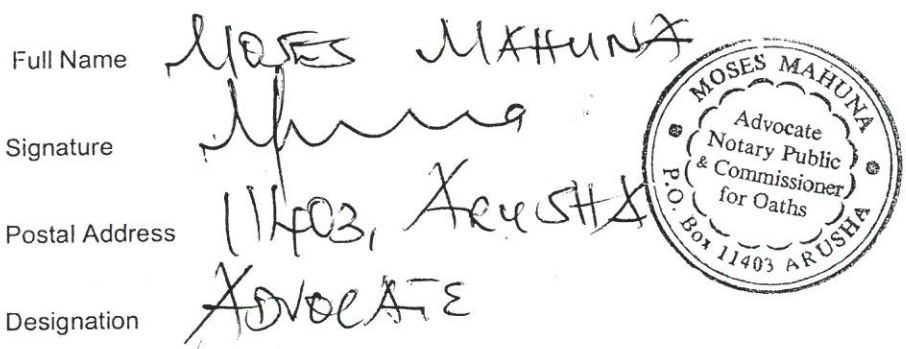 Full Name MOSES MAHUNA
Signature
Postal Address 11403, ARUSHA
Designation ADVOCATE
MOSES MAHUNA
Advocate
Notary Public
& Commissioner
for Oaths
P.O. Box 11403 ARUSHA